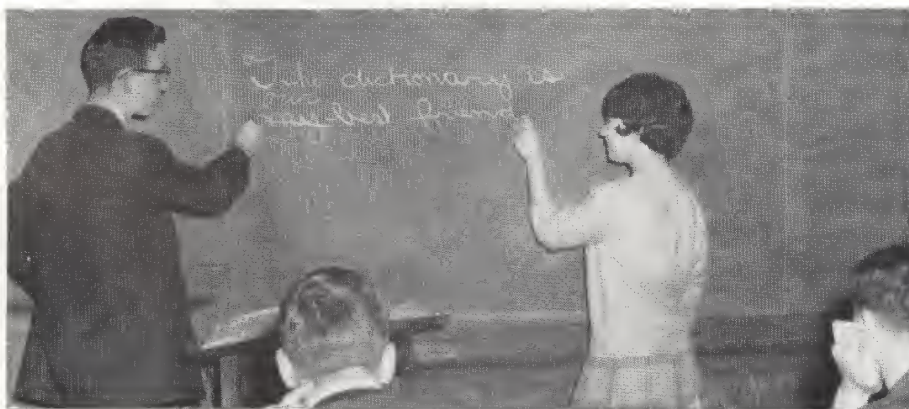 The dictionary is
best friend